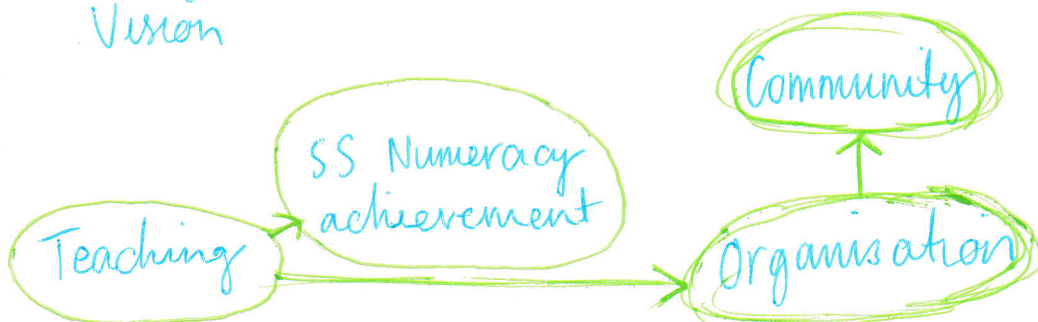 Vision
Community
SS Numeracy
achievement
Teaching
Organisation